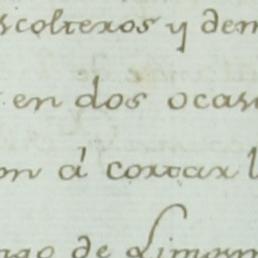 scolteros y dem
en dos ocas
on á cortar l
ngo de Limorn